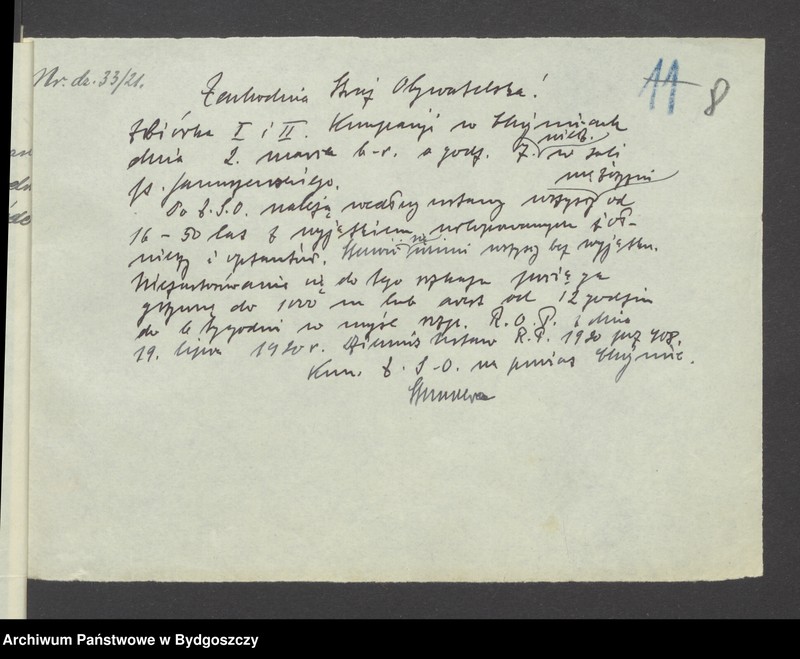 Nr. dz. 33/21.
11 8
Zachodnia Straż Obywatelska!
Zbiórka I i II. Kompanji w
dnia 2. marca b.r. o godz. 7. wiecz. w sali
p.
Do Z.S.O. należą według ustawy wszyscy mężczyźni od
16 - 50 lat z wyjątkiem żoł-
nierzy i optantów. się winni wszyscy bez wyjątku.
Niezastosowanie się do tego rozkazu pociąga
grzywnę do 1000 m lub areszt od 12 godzin
do 6 tygodni w myśl rozp. R.O.P. z dnia
19. lipca 1920 r. Dziennik Ustaw R.P. 1920 poz. 408.
Kom. Z.S.O. na powiat
Archiwum Państwowe w Bydgoszczy